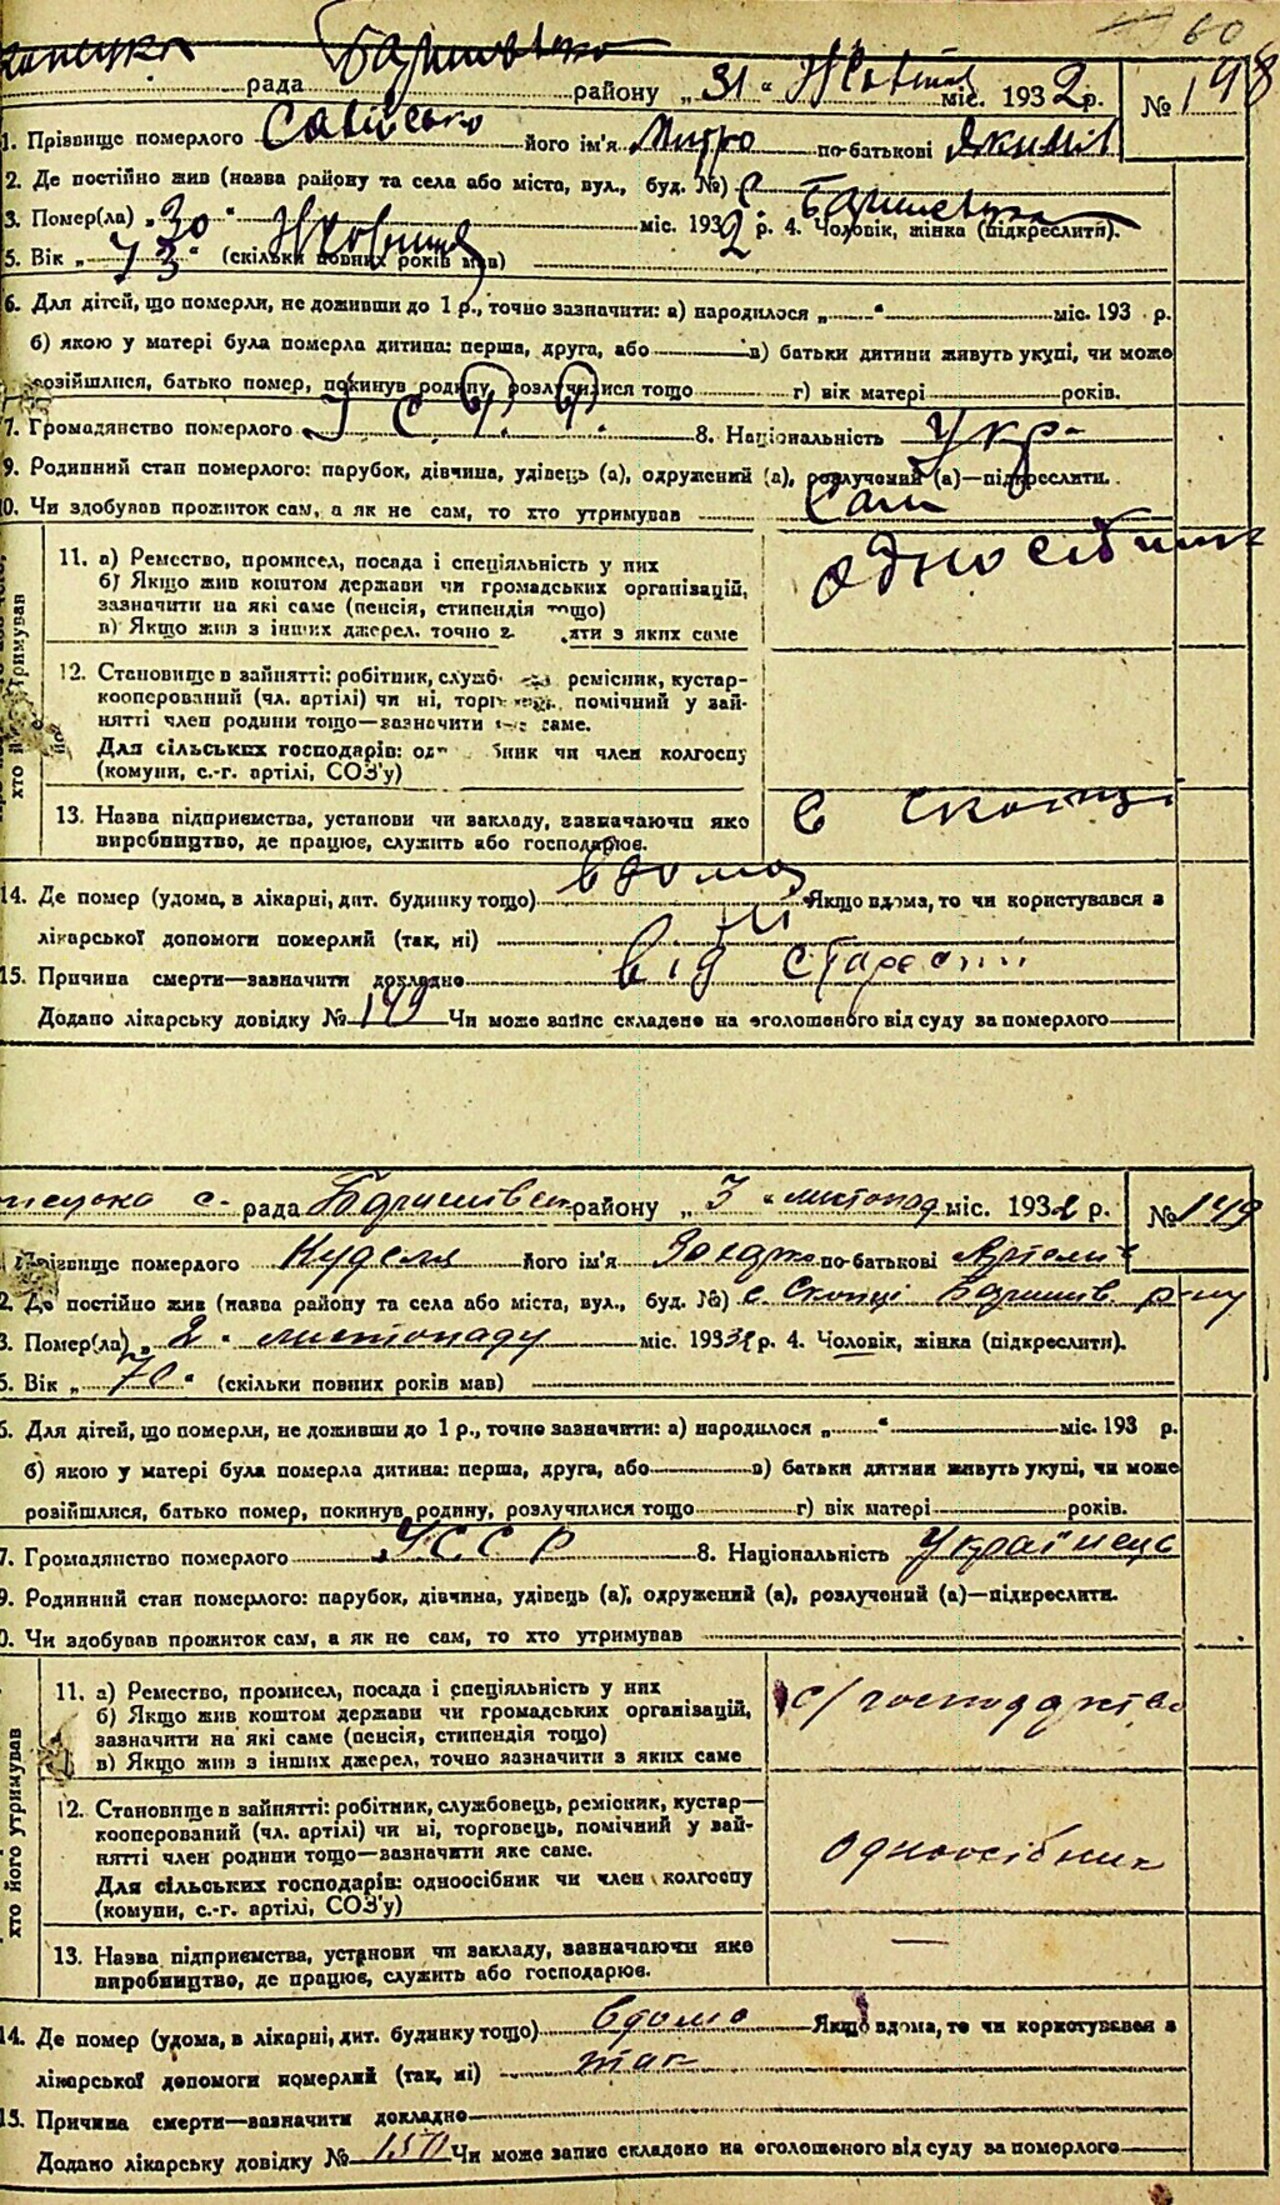 60
рада Баришевсько району „ 31 “ Жовтня міс. 1932 р. № 148
1. Прізвище померлого його ім'я Митро по-батькові Якимів
2. Де постійно жив (назва району та села або міста, вул., буд. №) с Баришевка
3. Помер(ла) „ 30 “ Жовтня міс. 1932 р. 4. Чоловік, жінка (підкреслити).
5. Вік „ 73 “ (скільки повних років мав)
6. Для дітей, що померли, не доживши до 1 р., точно зазначити: а) народилося „ “ міс. 193 р.
б) якою у матері була померла дитина: перша, друга, або в) батьки дитини живуть укупі, чи може
розійшлися, батько помер, покинув родину, розлучилися тощо г) вік матері років.
7. Громадянство померлого 8. Національність Укр-
9. Родинний стан померлого: парубок, дівчина, удівець (а), одружений (а), розлучений (а)—підкреслити.
0. Чи здобував прожиток сам, а як не сам, то хто утримував Сам
11. а) Ремество, промисел, посада і спеціяльність у них
б) Якщо жив коштом держави чи громадських організацій,
зазначити на які саме (пенсія, стипендія тощо)
в) Якщо жив з інших джерел, точно з яти з яких саме
одноосібник
12. Становище в зайнятті: робітник, служб ремісник, кустар-
кооперований (чл. артілі) чи ні, торг помічний у зай-
нятті член родини тощо—зазначити саме.
Для сільських господарів: од бник чи член колгоспу
(комуни, с.-г. артілі, СОЗ'у)
13. Назва підприємства, установи чи закладу, зазначаючи яке
виробництво, де працює, служить або господарює.
с Скопці
14. Де помер (удома, в лікарні, дит. будинку тощо) вдома Якщо вдома, то чи користувався з
лікарської допомоги померлий (так, ні) ні
15. Причина смерти—зазначити докладно від старости
Додано лікарську довідку № 149 Чи може запис складено на оголошеного від суду за померлого
с. рада Баришівськ району „ 3 “ листопад міс. 1932 р. № 149
Прізвище померлого Куделя його ім'я по-батькові
2. Де постійно жив (назва району та села або міста, вул., буд. №) с Скопці Баришів. р-ну
3. Помер(ла) „ 2 “ листопаду міс. 1932 р. 4. Чоловік, жінка (підкреслити).
5. Вік „ 70 “ (скільки повних років мав)
6. Для дітей, що померли, не доживши до 1 р., точно зазначити: а) народилося „ “ міс. 193 р.
б) якою у матері була померла дитина: перша, друга, або в) батьки дитини живуть укупі, чи може
розійшлися, батько помер, покинув родину, розлучилися тощо г) вік матері років.
7. Громадянство померлого УССР 8. Національність Українець
9. Родинний стан померлого: парубок, дівчина, удівець (а), одружений (а), розлучений (а)—підкреслити.
0. Чи здобував прожиток сам, а як не сам, то хто утримував
хто його утримував
11. а) Ремество, промисел, посада і спеціяльність у них
б) Якщо жив коштом держави чи громадських організацій,
зазначити на які саме (пенсія, стипендія тощо)
в) Якщо жив з інших джерел, точно зазначити з яких саме
с/господарство
12. Становище в зайнятті: робітник, службовець, ремісник, кустар—
кооперований (чл. артілі) чи ні, торговець, помічний у зай-
нятті член родини тощо—зазначити яке саме.
Для сільських господарів: одноосібник чи член колгоспу
(комуни, с.-г. артілі, СОЗ'у)
одноосібник
13. Назва підприємства, установи чи закладу, зазначаючи яке
виробництво, де працює, служить або господарює.
—
14. Де помер (удома, в лікарні, дит. будинку тощо) вдома Якщо вдома, то чи користувався з
лікарської допомоги померлий (так, ні) так
15. Причина смерти—зазначити докладно
Додано лікарську довідку № 150 Чи може запис складено на оголошеного від суду за померлого